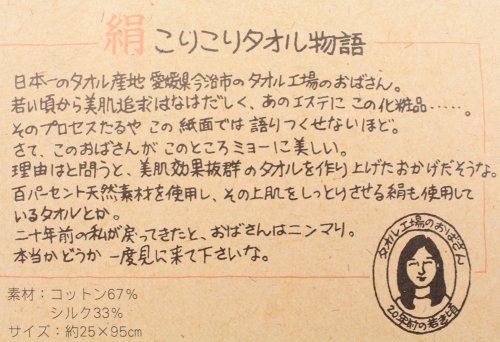 絹 こりこりタオル物語
日本一のタオル産地 愛媛県今治市のタオル工場のおばさん。
若い頃から美肌追求はなはだしく、あのエステに この化粧品……。
そのプロセスたるや この 紙面では 語りつくせないほど。
さて、このおばさんが このところミョーに美しい。
理由はと問うと、美肌効果抜群のタオルを作り上げたおかげだそうな。
百パーセント天然素材を使用し、その上肌をしっとりさせる絹も使用して
いるタオルとか。
二十年前の私が戻ってきたと、おばさんはニンマリ。
本当かどうか 一度見に来て下さいな。
タオル工場のおばさん
20年前の若き頃
素材：コットン67%
シルク33%
サイズ：約25×95cm